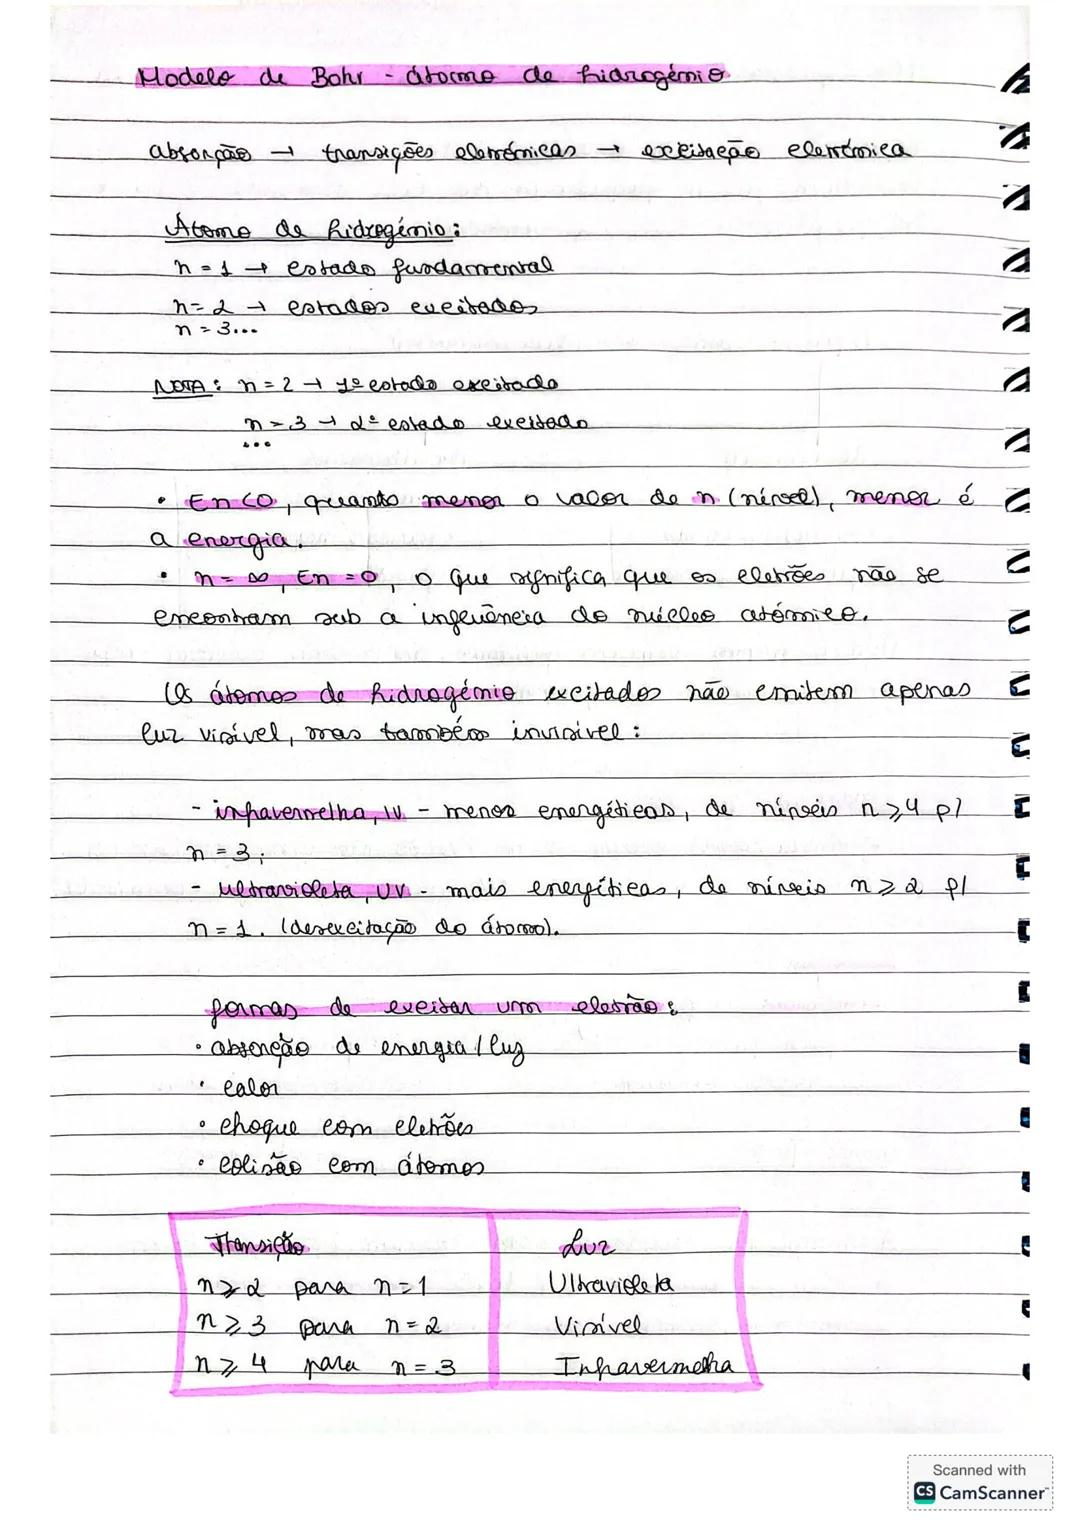 Modelo de Bohr - átomo de hidrogénio
absorção → transições eletrónicas → excitação eletrónica
Átomo de hidrogénio:
n = 1 → estado fundamental
n = 2 → estados excitados
n = 3...
NOTA: n = 2 → 1º estado excitado
n = 3 → 2º estado excitado
...
• En < 0, quanto menor o valor de n (nível), menor é
a energia.
• n = ∞, En = 0, o que significa que os eletrões não se
encontram sub a influência do núcleo atómico.
Os átomos de hidrogénio excitados não emitem apenas
luz visível, mas também invisível:
- infravermelha, IV - menos energéticas, de níveis n ⩾ 4 p/
n = 3;
- ultravioleta, UV - mais energéticas, de níveis n ⩾ 2 p/
n = 1. (desexcitação do átomo).
formas de excitar um eletrão:
• absorção de energia / luz
• calor
• choque com eletrões
• colisão com átomos
Transição Luz
n ⩾ 2 para n = 1 Ultravioleta
n ⩾ 3 para n = 2 Visível
n ⩾ 4 para n = 3 Infravermelha
Scanned with
CS CamScanner